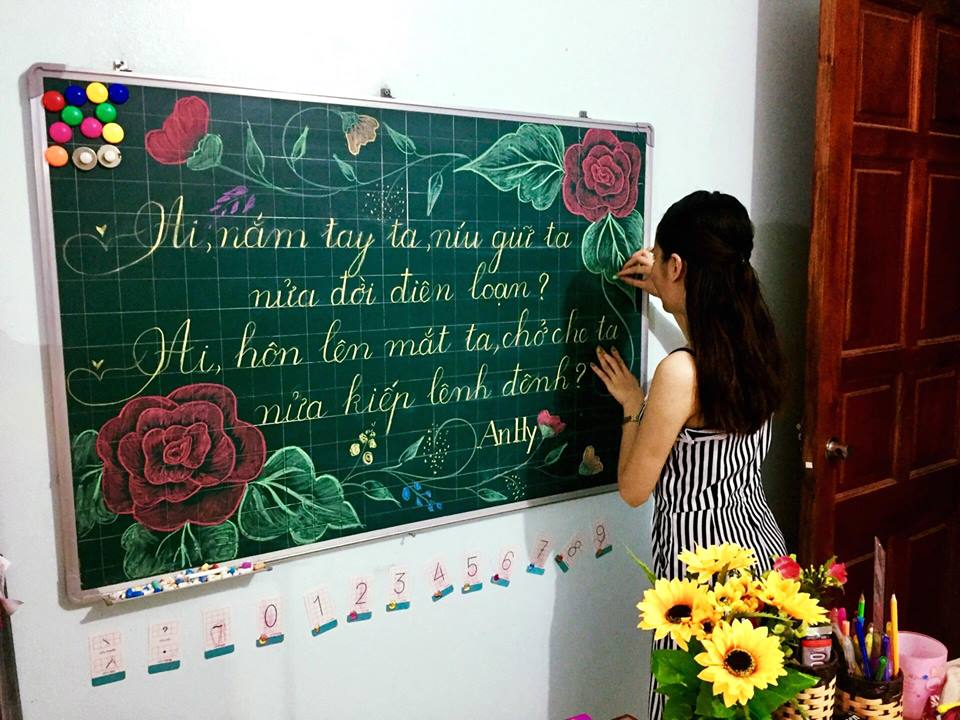 Ai, nắm tay ta, níu giữ ta
nửa đời điên loạn?
Ai, hôn lên mắt ta, chở che ta
nửa kiếp lênh đênh?
An Hy
0 1 2 3 4 5 6 7 8 9